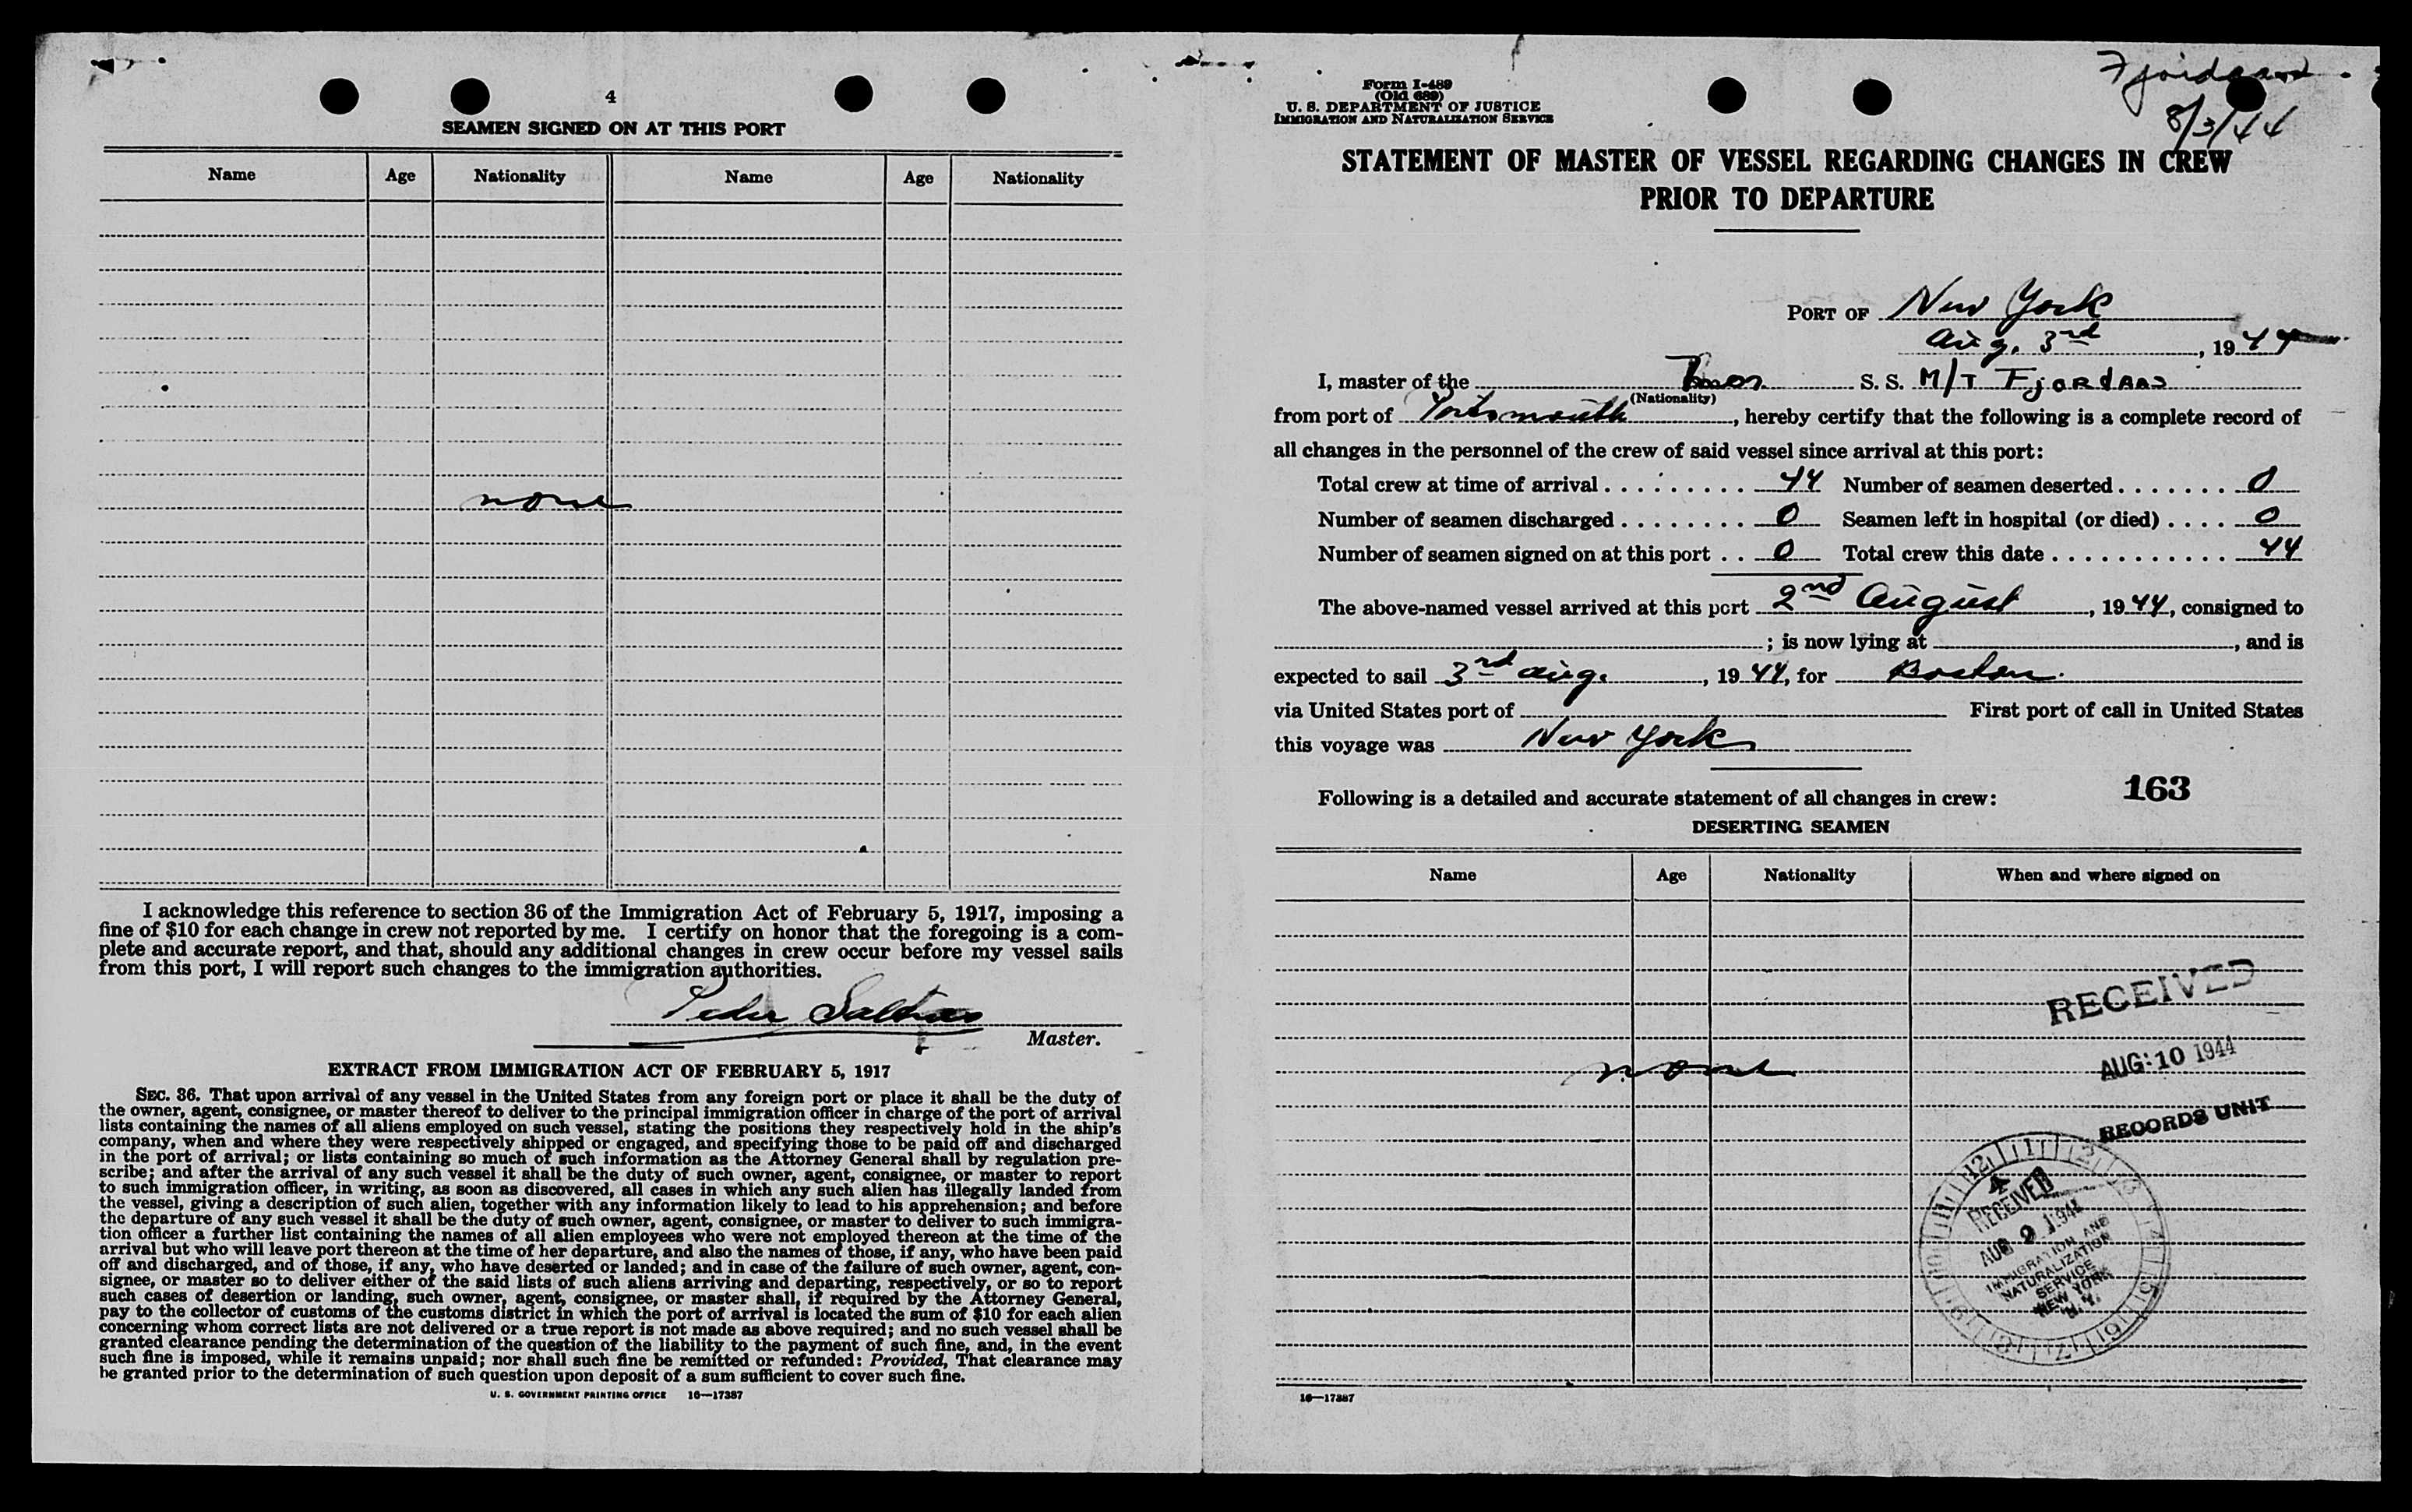 4
SEAMEN SIGNED ON AT THIS PORT
Name Age Nationality Name Age Nationality
none
I acknowledge this reference to section 36 of the Immigration Act of February 5, 1917, imposing a
fine of $10 for each change in crew not reported by me. I certify on honor that the foregoing is a com-
plete and accurate report, and that, should any additional changes in crew occur before my vessel sails
from this port, I will report such changes to the immigration authorities.
Peder
Master.
EXTRACT FROM IMMIGRATION ACT OF FEBRUARY 5, 1917
SEC. 36. That upon arrival of any vessel in the United States from any foreign port or place it shall be the duty of
the owner, agent, consignee, or master thereof to deliver to the principal immigration officer in charge of the port of arrival
lists containing the names of all aliens employed on such vessel, stating the positions they respectively hold in the ship's
company, when and where they were respectively shipped or engaged, and specifying those to be paid off and discharged
in the port of arrival; or lists containing so much of such information as the Attorney General shall by regulation pre-
scribe; and after the arrival of any such vessel it shall be the duty of such owner, agent, consignee, or master to report
to such immigration officer, in writing, as soon as discovered, all cases in which any such alien has illegally landed from
the vessel, giving a description of such alien, together with any information likely to lead to his apprehension; and before
the departure of any such vessel it shall be the duty of such owner, agent, consignee, or master to deliver to such immigra-
tion officer a further list containing the names of all alien employees who were not employed thereon at the time of the
arrival but who will leave port thereon at the time of her departure, and also the names of those, if any, who have been paid
off and discharged, and of those, if any, who have deserted or landed; and in case of the failure of such owner, agent, con-
signee, or master so to deliver either of the said lists of such aliens arriving and departing, respectively, or so to report
such cases of desertion or landing, such owner, agent, consignee, or master shall, if required by the Attorney General,
pay to the collector of customs of the customs district in which the port of arrival is located the sum of $10 for each alien
concerning whom correct lists are not delivered or a true report is not made as above required; and no such vessel shall be
granted clearance pending the determination of the question of the liability to the payment of such fine, and, in the event
such fine is imposed, while it remains unpaid; nor shall such fine be remitted or refunded: Provided, That clearance may
be granted prior to the determination of such question upon deposit of a sum sufficient to cover such fine.
U. S. GOVERNMENT PRINTING OFFICE 16—17387
Form I-489
(Old 689)
U. S. DEPARTMENT OF JUSTICE
IMMIGRATION AND NATURALIZATION SERVICE
Fjordaas
8/3/44
STATEMENT OF MASTER OF VESSEL REGARDING CHANGES IN CREW
PRIOR TO DEPARTURE
PORT OF New York
Aug. 3rd, 1944
I, master of the S. S. M/T FjORdAAS
(Nationality)
from port of Portsmouth, hereby certify that the following is a complete record of
all changes in the personnel of the crew of said vessel since arrival at this port:
Total crew at time of arrival . . . . . . . . . 44 Number of seamen deserted . . . . . . . 0
Number of seamen discharged . . . . . . . . 0 Seamen left in hospital (or died) . . . . 0
Number of seamen signed on at this port . . 0 Total crew this date . . . . . . . . . . . 44
The above-named vessel arrived at this port 2nd August, 1944, consigned to
; is now lying at , and is
expected to sail 3rd Aug., 1944, for Boston.
via United States port of First port of call in United States
this voyage was New York
163
Following is a detailed and accurate statement of all changes in crew:
DESERTING SEAMEN
Name Age Nationality When and where signed on
RECEIVED
none
AUG 10 1944
RECORDS UNIT
RECEIVED
AUG 9 1944
IMMIGRATION AND
NATURALIZATION
SERVICE
NEW YORK
N.Y.
16—17387